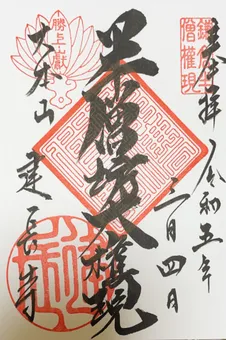 鎌倉半
僧權現
奉拝 令和五年
三月四日
半僧坊大権現
勝上嶽
大本山 建長寺